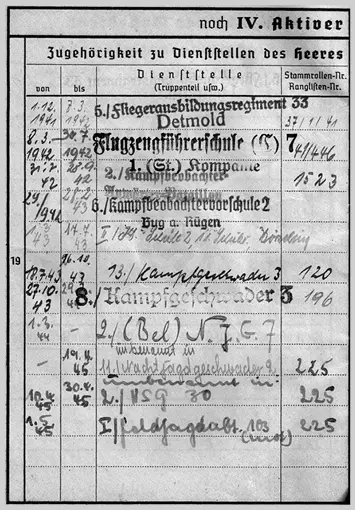 noch IV. Aktiver
Zugehörigkeit zu Dienststellen des Heeres
von bis Dienststelle (Truppenteil usw.) Stammrollen-Nr. Ranglisten-Nr.
1.12. 1941 7.3. 1942 5./Fliegerausbildungsregiment 33
Detmold 37/1/41
8.3. 1942 30.7. 1942 Flugzeugführerschule (C) 7 41/446
31.7. 42 1. (St.) Kompanie
2./Kampfbeobachter 1523
29/ 1942 6./Kampfbeobachtervorschule 2
Bug a. Rügen
43 43 I/
19
18.7.43 16.10. 43 13./Kampfgeschwader 3 120
27.10. 43 8./Kampfgeschwader 3 196
1.3. 44 – 2./(Bel) N.J.G. 7
umbenannt in
– 19.4. 45 11./Nachtjagdgeschwader 2 225
umbenannt in
10.4. 45 30.4. 45 2./NSG 30 225
1.5. 45 I/Feldjagdabt. 103 225
(mot)